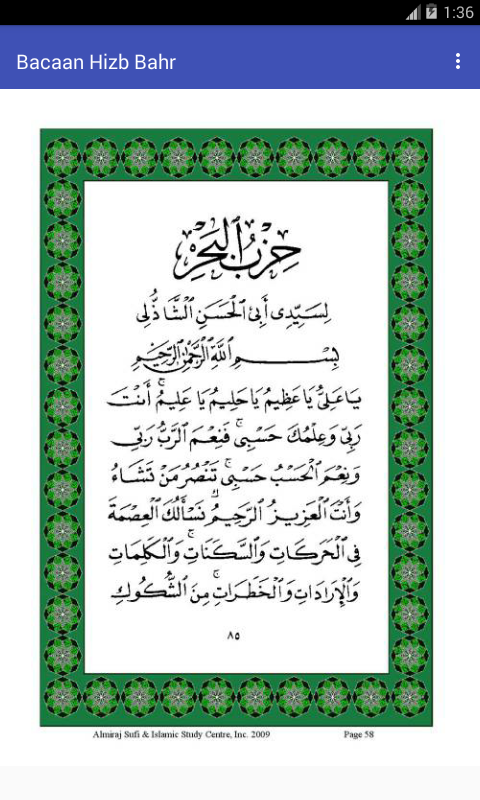 1:36
Bacaan Hizb Bahr
حِزْبُ الْبَحْرِ
لِسَيِّدِى أَبِى الْحَسَنِ الشَّاذُلِى
بِسْمِ اللَّهِ الرَّحْمَٰنِ الرَّحِيمِ
يَا عَلِىُّ يَا عَظِيمُ يَا حَلِيمُ يَا عَلِيمُ ۚ أَنْتَ
رَبِّى وَعِلْمُكَ حَسْبِى ۚ فَنِعْمَ الرَّبُّ رَبِّى
وَنِعْمَ الْحَسْبُ حَسْبِى ۚ تَنْصُرُ مَنْ تَشَاءُ
وَأَنْتَ الْعَزِيزُ الرَّحِيمُ ۗ نَسْأَلُكَ الْعِصْمَةَ
فِى الْحَرَكَاتِ وَالسَّكَنَاتِ ۚ وَالْكَلِمَاتِ
وَالْإِرَادَاتِ وَالْخَطَرَاتِ ۚ مِنَ الشُّكُوكِ
٨٥
Almiraj Sufi & Islamic Study Centre, Inc. 2009 Page 58